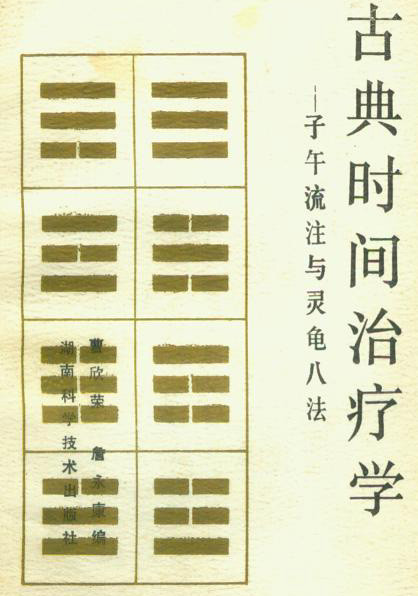 古典时间治疗学
——子午流注与灵龟八法
曹欣荣 詹永康编
湖南科学技术出版社